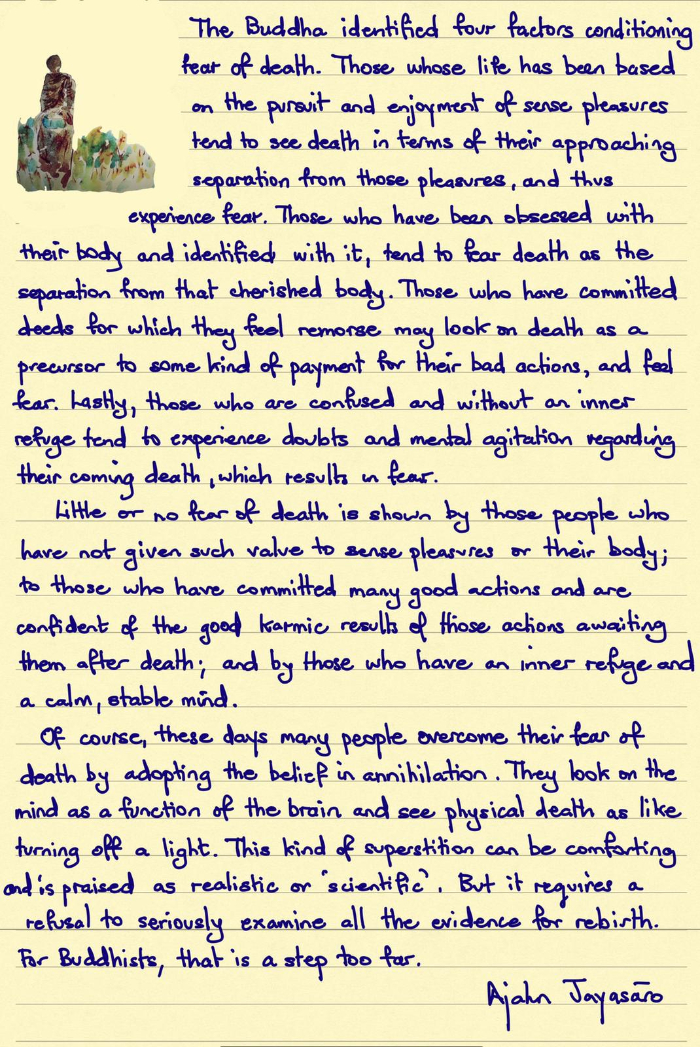 The Buddha identified four factors conditioning
fear of death. Those whose life has been based
on the pursuit and enjoyment of sense pleasures
tend to see death in terms of their approaching
separation from those pleasures, and thus
experience fear. Those who have been obsessed with
their body and identified with it, tend to fear death as the
separation from that cherished body. Those who have committed
deeds for which they feel remorse may look on death as a
precursor to some kind of payment for their bad actions, and feel
fear. Lastly, those who are confused and without an inner
refuge tend to experience doubts and mental agitation regarding
their coming death, which results in fear.
Little or no fear of death is shown by those people who
have not given such value to sense pleasures or their body;
to those who have committed many good actions and are
confident of the good karmic results of those actions awaiting
them after death; and by those who have an inner refuge and
a calm, stable mind.
Of course, these days many people overcome their fear of
death by adopting the belief in annihilation. They look on the
mind as a function of the brain and see physical death as like
turning off a light. This kind of superstition can be comforting
and is praised as realistic or "scientific". But it requires a
refusal to seriously examine all the evidence for rebirth.
For Buddhists, that is a step too far.
Ajahn Jayasāro